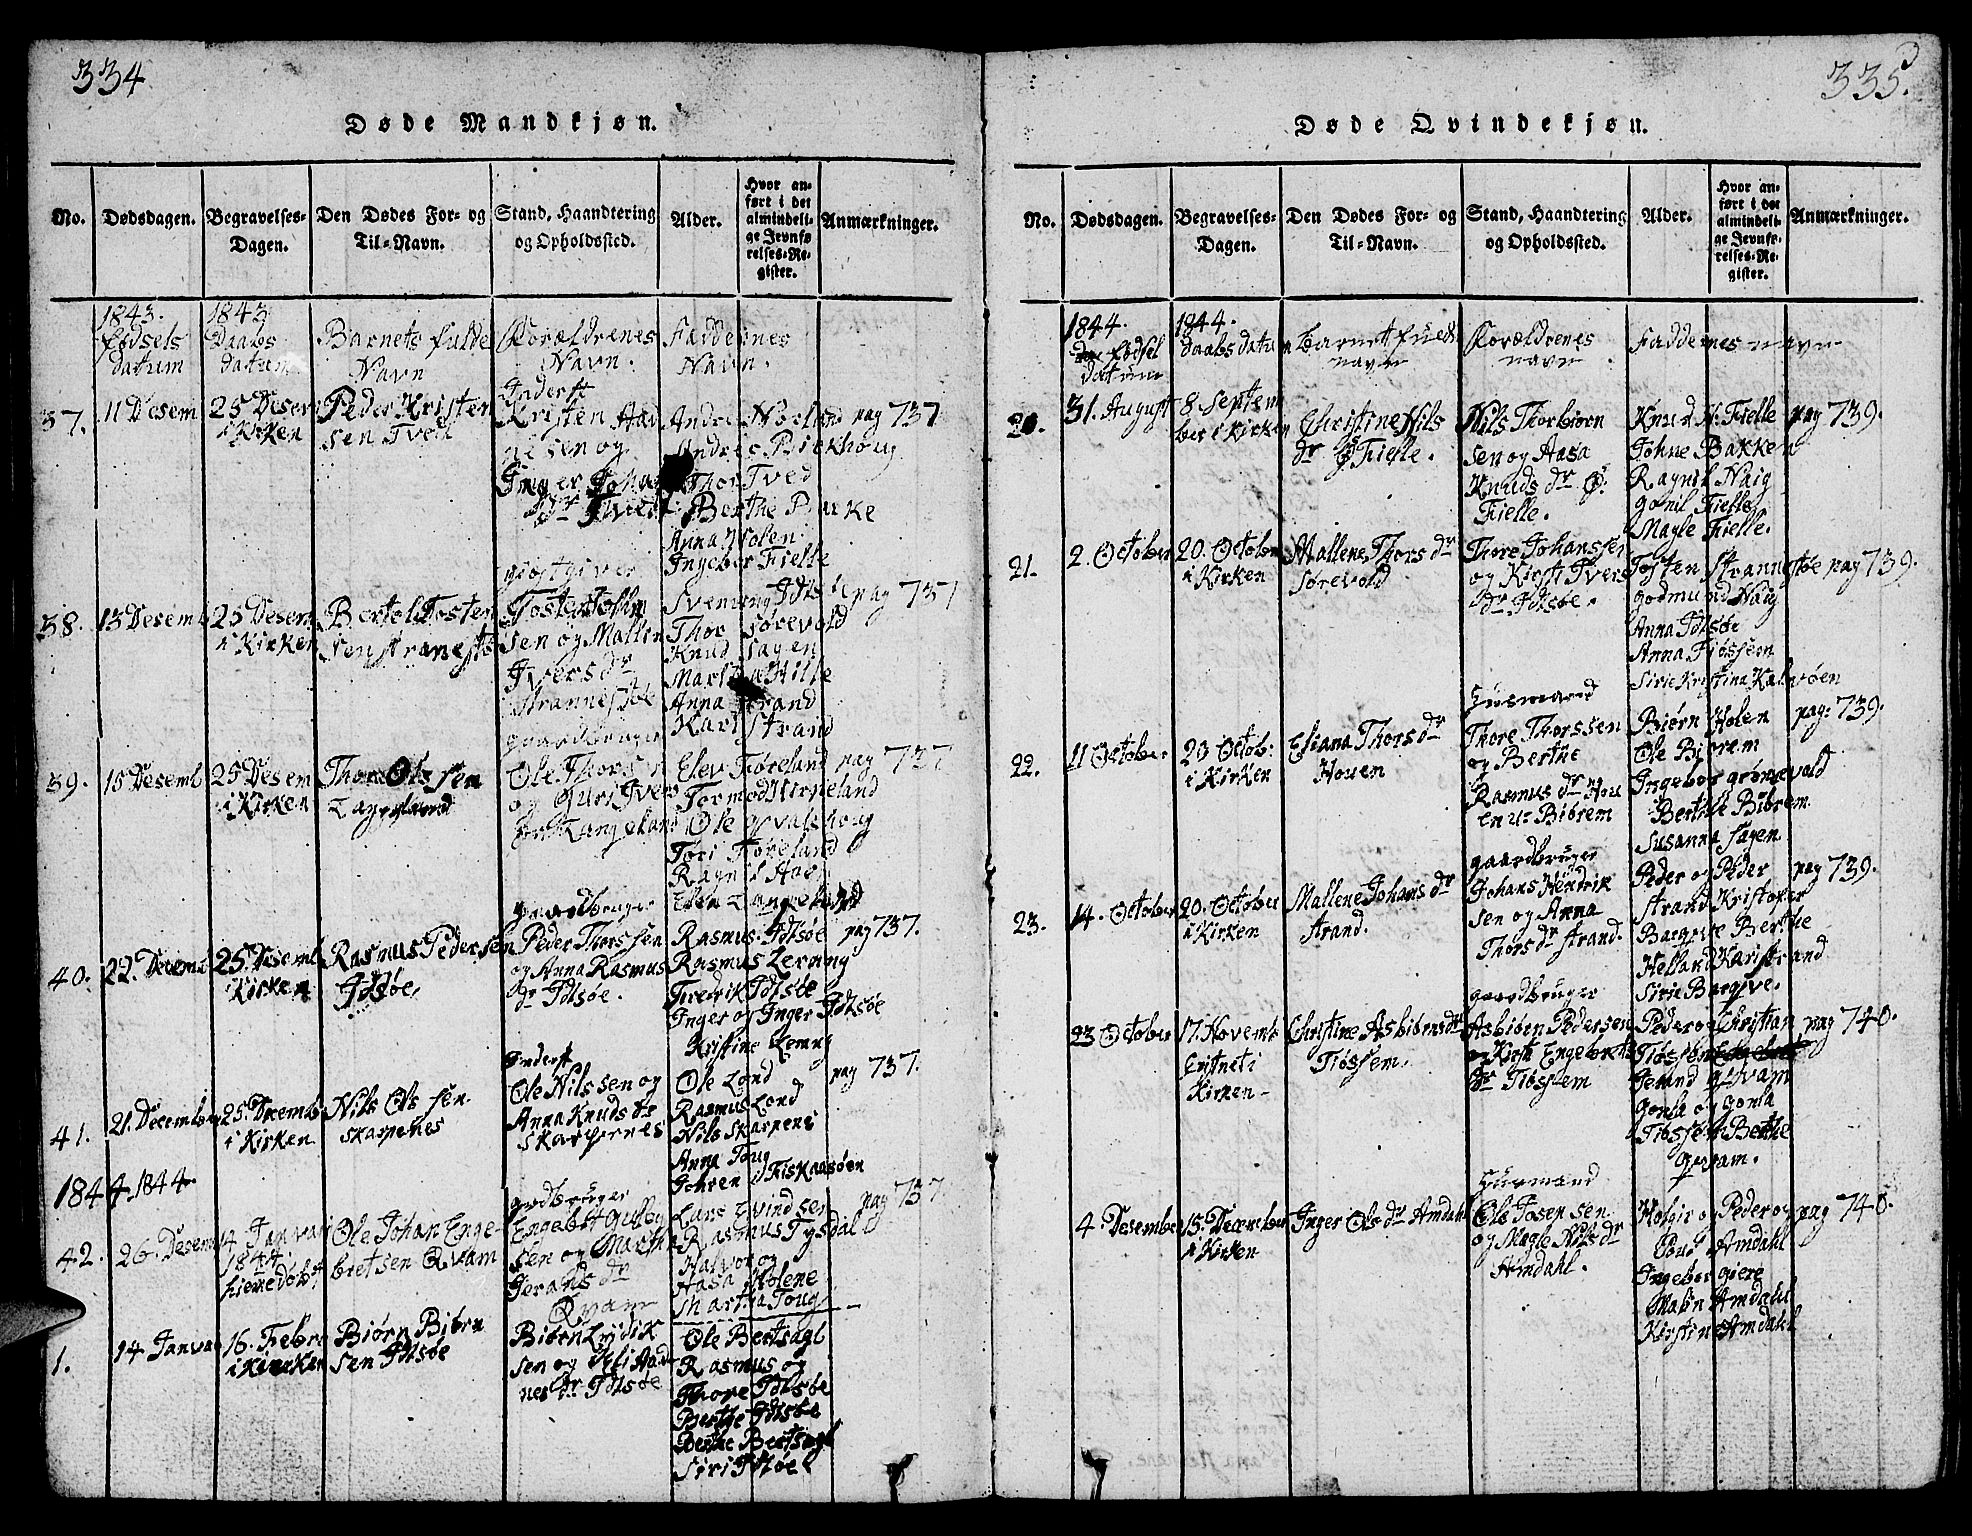 334
Døde Mandkjøn.
No.
Dødsdagen.
Begravelses-
Dagen.
Den Dødes For- og
Til-Navn.
Stand, Haandtering
og Opholdssted.
Alder.
Hvor an-
ført i det
almindeli-
ge Jevnfø
relses-Re-
gister.
Anmærkninger.
1843.
fødsels
datum
1843
Daabs
datum
Barnets fulde
Navn
Forældrenes
Navn.
Faddernes
Navn.
37.
11 Desem
25 Desem
i Kirken
Peder Kristen
sen Tved
Inderst
Kristen Aad
nesen og
Inger Joha
dr Tved
Andr Norland
Andres Birkhoug
Thor Tved
Berthe Birke
Anna Holen
Ingebor Fielle
pag 737
38.
13 Desemb
25 Desem
i Kirken
Bertel Tosten
sen Stranestø
giæstgiver
Tosten
sen og Mallen
Ivers dr
Strannestøe
Svenning Idtsøe
Thor Sørevold
Knud Sagen
Marthe Hille
Anna Strand
Kari Strand
pag 737
39.
15 Desemb
25 Desem
i Kirken
Thor Olssen
Langeland
gaardbruger
Ole Thorsen
og Guri Ivers
dr Langeland
Elev Føreland
Tormod Hirpeland
Ole Qvalshoug
Tori Føreland
Ragnil Aae
Elen Langeland
pag 737
40.
22. Decemb
25. Desemb
i Kirken
Rasmus Pedersen
Idsøe,
gaardbruger
Peder Thorssen
og Anna Rasmus
dr Idtsøe.
Rasmus Idtsøe
Rasmus Lerang
Fredrik Idtsøe
Inger og Inger Idtsøe
Kristine Lerang
pag 737.
41.
21. December
25. Decemb
i Kirken
Nils Olssen
Skarpenes
Inderst
Ole Nilssen og
Anna Knuds dr
Skarpernes
Ole Lond
Rasmus Lond
Nils Skarpens
Anna Toug
Johren i Fiskaasøen
pag 737.
1844. 1844.
42.
26. Desem
4 Janvar
1844.
hiemedøbt
Ole Johan Enge-
bretsen Qvam
gardbruger
Engebret Gulleg
sen og Martha
Jerands dr
Qvam
Lars Evindsen
Rasmus Tysdal
Halvor og
Aasa Molene
Martha Toug
pag 737
1.
14 Janvar
16. Febr
i Kierken
Biørn Biørn
sen Idtsøe
Biørn Lydik
sen og Eli Aad
nes dr Idtsøe
Ole Bertsagl
Rasmus og
Thore Idtsøe
Berthe Idtsøe
Berthe Bertsagl
Siri Idtsøe
335.
Døde Qvindekjøn.
No.
Dødsdagen.
Begravelses-
Dagen.
Den Dødes For- og
Til-Navn.
Stand, Haandtering
og Opholdssted.
Alder.
Hvor an-
ført i det
almindeli-
ge Jevnfø-
relses-Re-
gister.
Anmærkninger.
1844.
fødsel
datum
1844.
daabs datum
Barnet fulde
navn
Forældrenes
navn
Faddernes navn
20.
31. August
8 Septem
ber i Kirken
Christine Nils
dr Fielle.
Nils Thorbiørn
sen og Aasa
Knuds dr
Fielle.
Knud N: Fielle
Johne Bakken
Ragnil Haig
gonil Fielle
Magle Fielle.
pag 739.
21.
2. October
20. Octobr
i Kirken
Mallene Thors dr
Sørevold
Thore Johanssen
og Kirsti Ivers
dr Idtsøe.
Tosten Strannestøe
godmund Haig
Anna Idtsøe
Anna Tiøssem
Sirie Kristina Kalvøen
pag 739.
22.
11 October
20 Octob:
i Kirken
Eliana Thors dr
Houen
Husmand
Thore Thorssen
og Berthe
Rasmus dr Hou
en u- Biørem
Biørn Holen
Ole Biørem
Ingebor grønevold
Berthe Biørem
Susanna Sagen
pag: 739.
23.
14. October
20. October
i Kirken
Mallene Johans dr
Strand.
gaardbruger
Johans Hendrik
sen og Anna
Thors dr Strand.
Peder og Peder
Strand Kristofer
Bargive Berthe
Helland Kari Strand
Sirie Bargive.
pag 739.
23 October
17. Novemb
Cristnet i
Kirken
Christine Asbiørns dr
Tiøssem.
gaardbruger
Asbiørn Pedersen
og Kirsti Engebrets
dr Tiøssem
Peder og Christian
Tiøssem
Jerand Qvam
gonla og gonla
Tiøssem Berthe
Qvam.
pag 740.
4. Desember
15. December
i Kirken
Inger Ols dr Amdahl
Husmand
Ole Tosensen
og Magle Nils dr
Amdahl.
Holgir og Peder og
Poul Amdahl
Ingebor giere
Malin Amdahl
Kirsten Amdahl
pag 740.